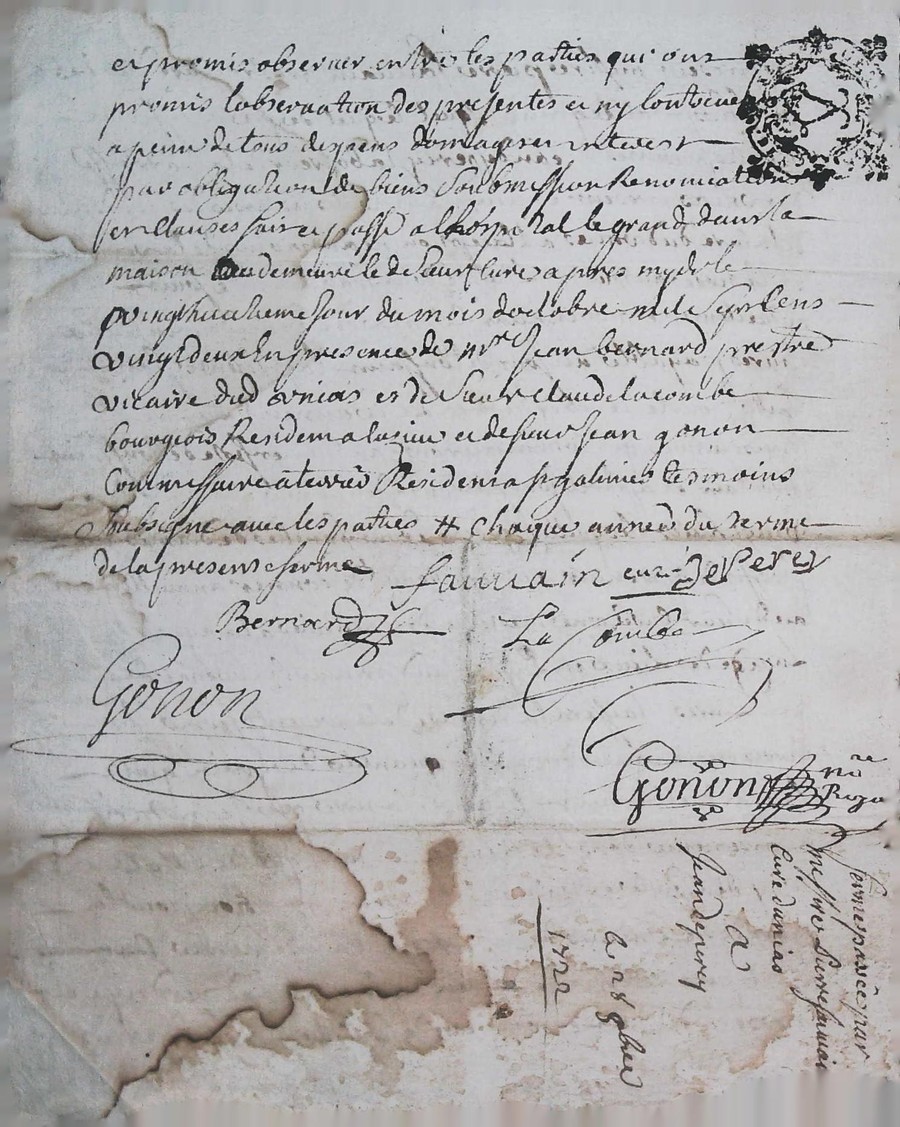 et promis observer entre les parties qui ont
promis l'observation des presentes et ny contreve
a peine de tous despens domages et interest
par obligation de biens Soubmission Renonciations
et Clauses fait et passé a l'hôpital le grand dans la
maison demeure le d Sieur Cure apres mydy le
vingthuictieme Jour du mois doctobre mil Sept Cens
vingt deux En presence de Mre Jean bernard prestre
vicaire dud Unias et de Sieur Claude lacombe
bourgeois Resident a et de Sieur Jean gonon
Commissaire a terrier Resident a st galmier tesmoins
Soubsigne avec les parties # Chaque année du terme
de la presente ferme
fauvain curé JePerey
Bernard
La Combe
Gonon
Gonon nore
Roya
ferme passée par
messire Pierre
Cure dunias
a
Jean deperey
le 28 8bre
1722